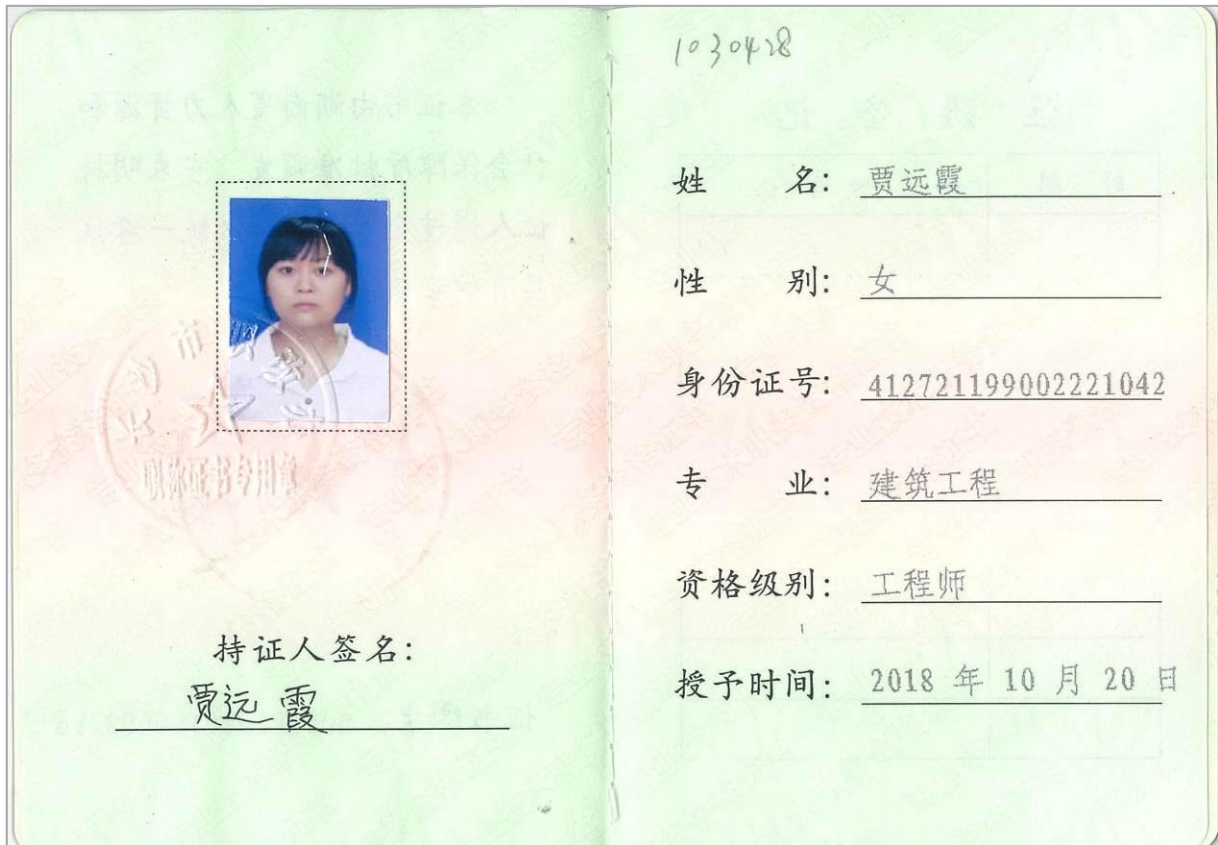 持证人签名:
贾远霞
1030428
姓 名: 贾远霞
性 别: 女
身份证号: 412721199002221042
专 业: 建筑工程
资格级别: 工程师
授予时间: 2018 年 10 月 20 日
职称证书专用章